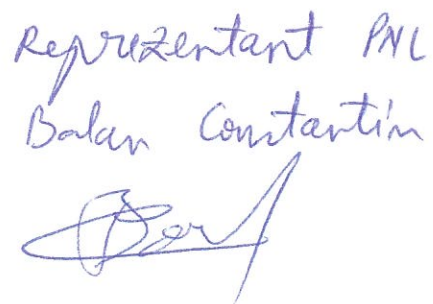 Reprezentant PNL
Balan Constantin